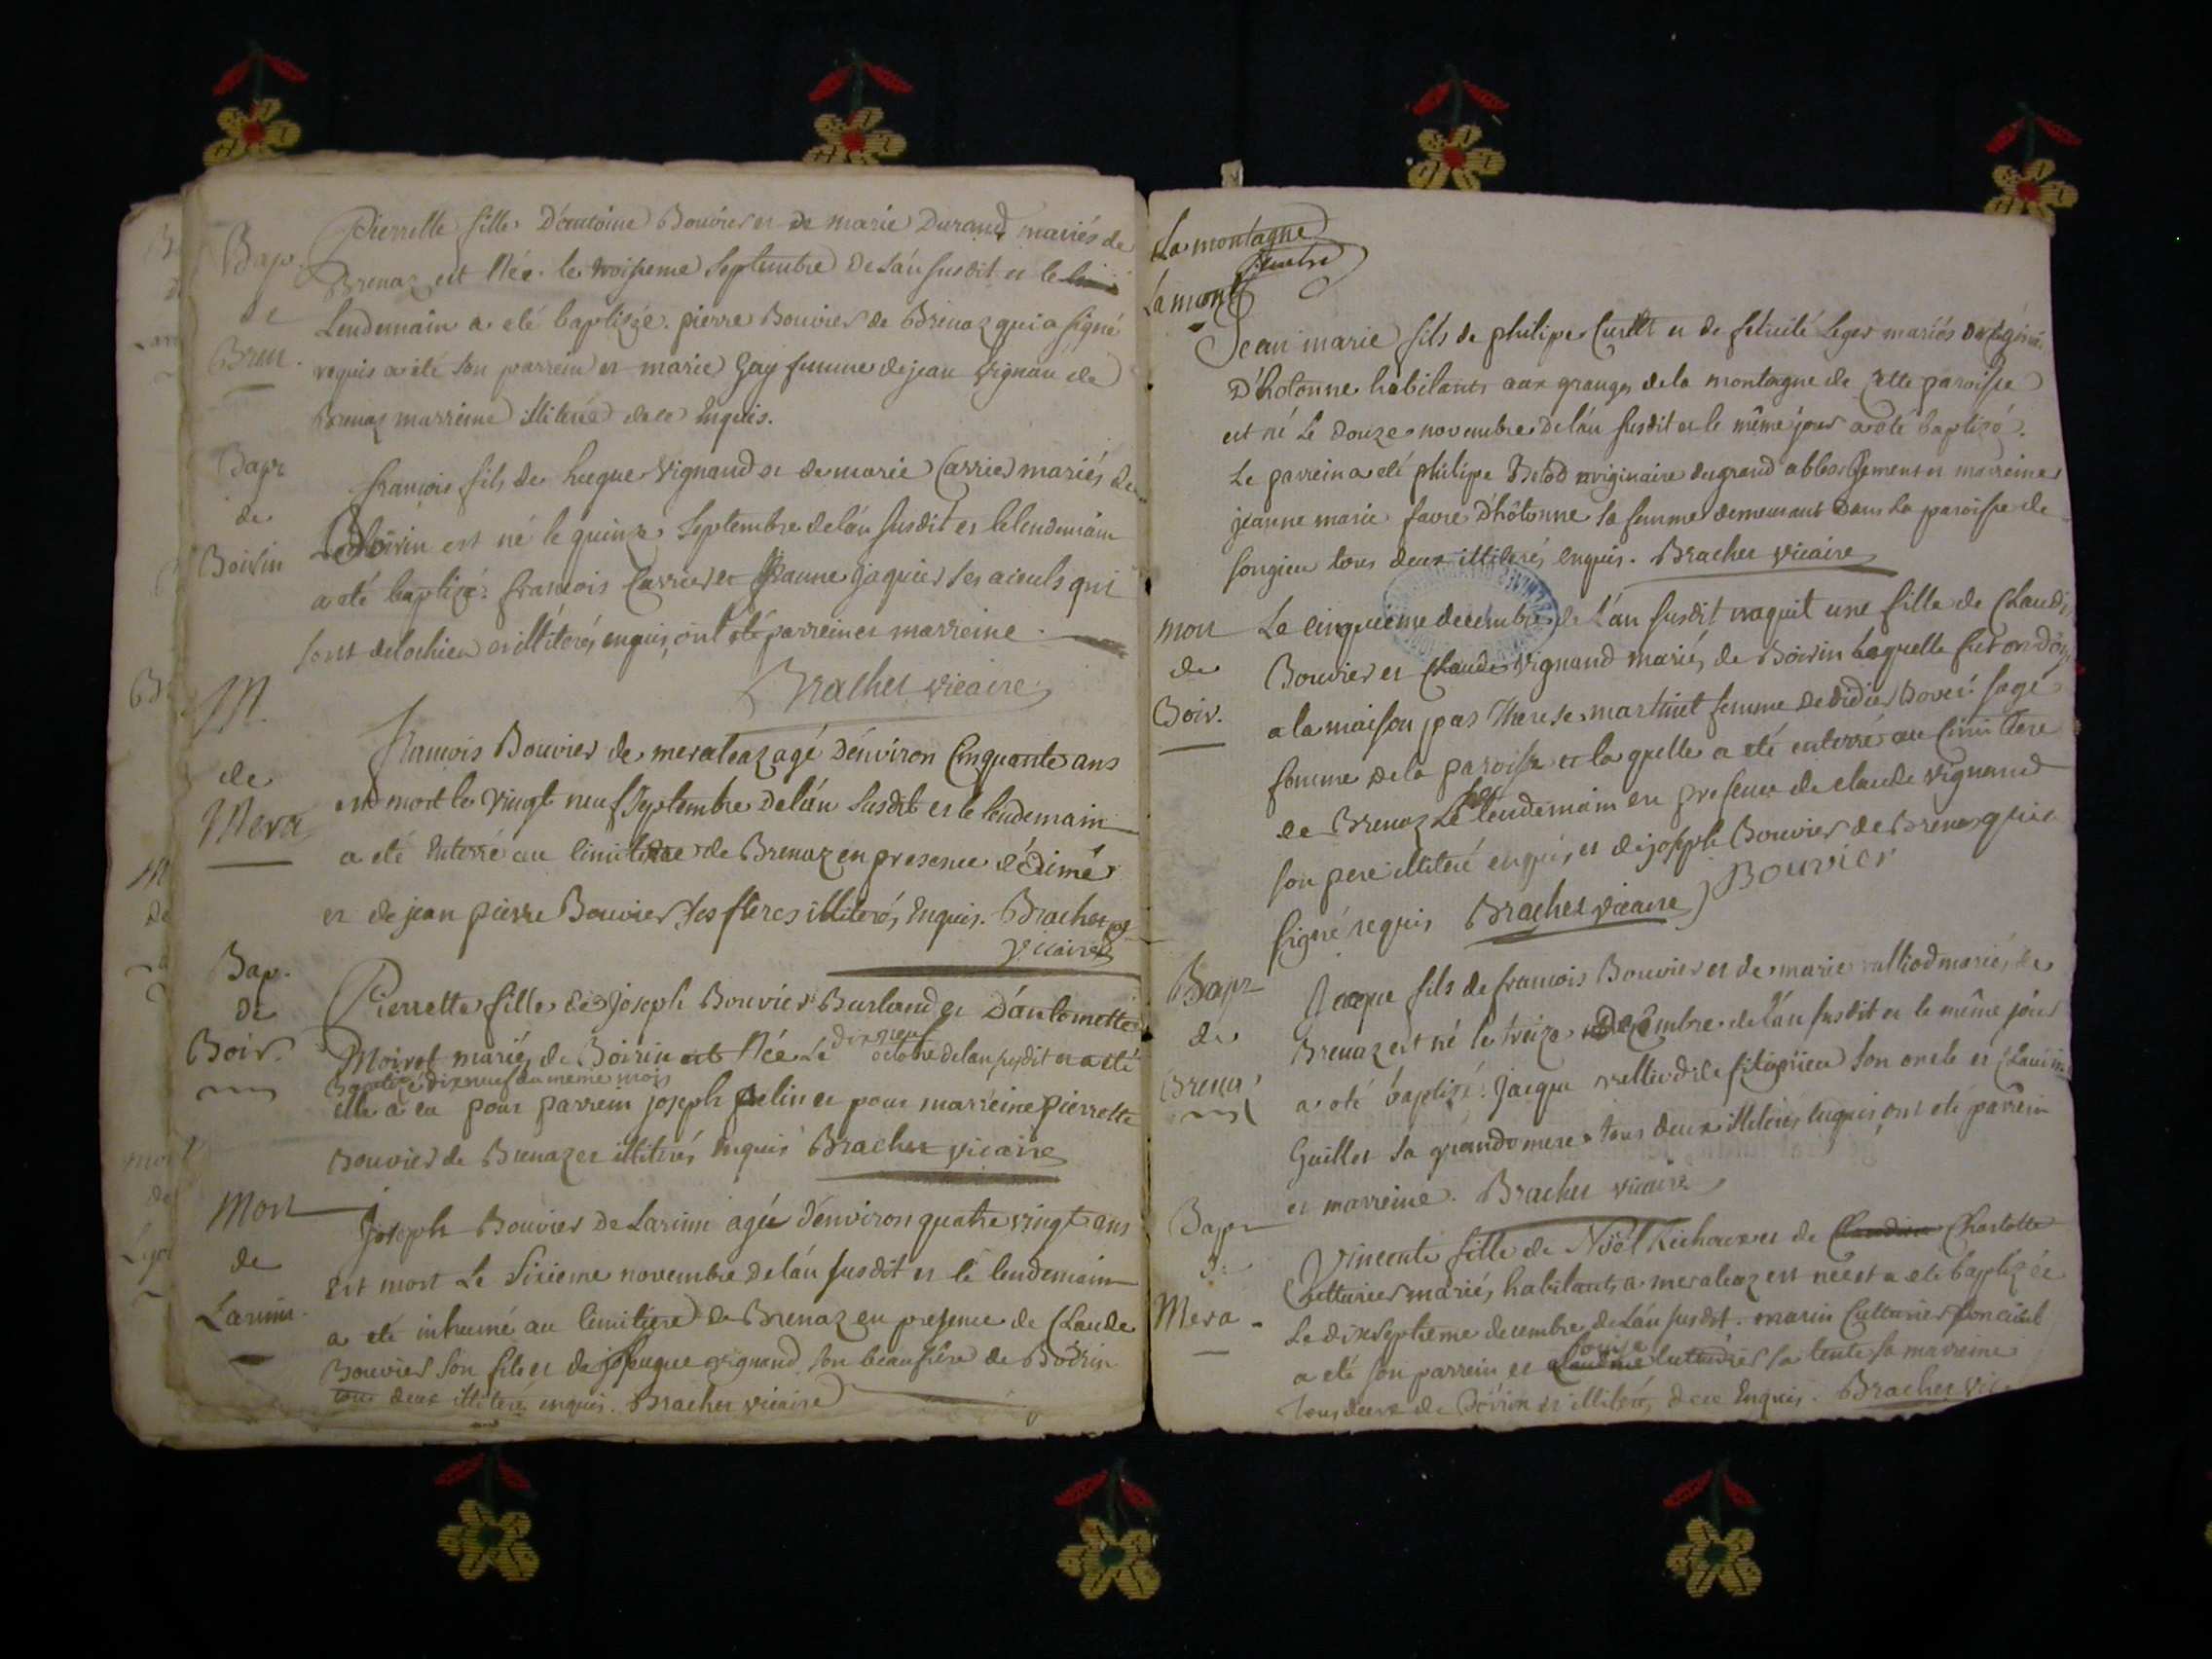 Bap.
de
Bren.
Pierrette fille D'antoine Bouvier et de marie Durand mariés de
Brenaz est Née le troisieme Septembre De l'án susdit et le
Lendemain a eté baptizée. pierre Bouvier de Brenaz qui a signé
requis a été son parrein et marie Gay femme de jean vignan de
Brenaz marreine illiterée de ce Enquis.
Bapt
de
Boirin
francois fils de hugue vignand et de marie Carrier mariés de
Boirin est né le quinze Septembre de l'án susdit et le lendemain
a eté baptizé. francois Carrier et Jeanne jaquier ses aieuls qui
sont de lochieu et illiterés enquis, ont été parrein et marreine.
Bracher vicaire
M.
de
Mera
francois Bouvier de meraleaz agé d'environ Cinquante ans
est mort le vingt neuf Septembre de l'án Susdit et le lendemain
a eté Enterré au Cimitiere de Brenaz en presence d'Edimé
et de jean pierre Bouvier ses freres illiterés Enquis. Bracher
vicaire
Bap.
De
Boir.
Pierrette fille de Joseph Bouvier Burland et D'antomette
Moiret mariés de Boirin est Née Le dixneuf octobre de l'an susdit et a eté
Baptizé dixneuf du meme mois
elle a eu pour parrein joseph pelin et pour marreine pierrette
Bouvier de Brenaz et illiterés Enquis Bracher vicaire
Mort
de
Larinn.
Joseph Bouvier De Larinn agée d'environ quatre vingt ans
Est mort Le Sixieme novembre de l'án susdit et le lendemain
a eté inhumé au Cimitiere de Brenaz en presence de Claude
Bouvier son fils et de hugue vignand son beaufrère de Boirin
tous deux illiterés enquis. Bracher vicaire
La montagne
La mont
Jean marie fils de philipe Curtet et de felicité Leger mariés
D'hotonne habitants aux granges de la montagne de cette paroisse
est né Le Douze novembre de l'án susdit et le même jour a eté baptizé.
Le parrein a eté philipe Betod originaire du grand abbergement et marreine
jeanne marie favre D'hôtonne sa femme demeurant Dans la paroisse de
songieu tous deux illiterés enquis. Bracher vicaire
mort
de
Boir.
Le cinquieme decembre de l'an susdit naquit une fille de Claude
Bouvier et Claude vignand mariés de Boirin laquelle fut
a la maison par Therese martinet femme de didier sage
femme de la paroisse et la quelle a eté enterré au Cimitiere
de Brenaz Le lendemain en presence de claude vignand
son pere illiteré enquis, et de joseph Bouvier de Brenaz qui a
signé requis Bracher vicaire Bouvier
Bapt
de
Brena
Jacque fils de francois Bouvier et de marie valliod mariés de
Brenaz est né le treize Décembre de l'án susdit et le même jour
a eté baptizé. Jacque valliod de son oncle et
Guillet sa grande mere tous deux illiterés enquis, ont eté parrein
et marreine. Bracher vicaire
Bapt
de
Mera
Vincente fille de Noël Richoux et de Charlotte
Cutturier mariés habitants a meraleaz est née et a eté baptizée
Le dixseptieme decembre de l'án susdit. marin Cutturier son aieul
a eté son parrein et louise Cutturier sa tente sa marreine
Tous deux de Boirin et illiterés de ce Enquis. Bracher